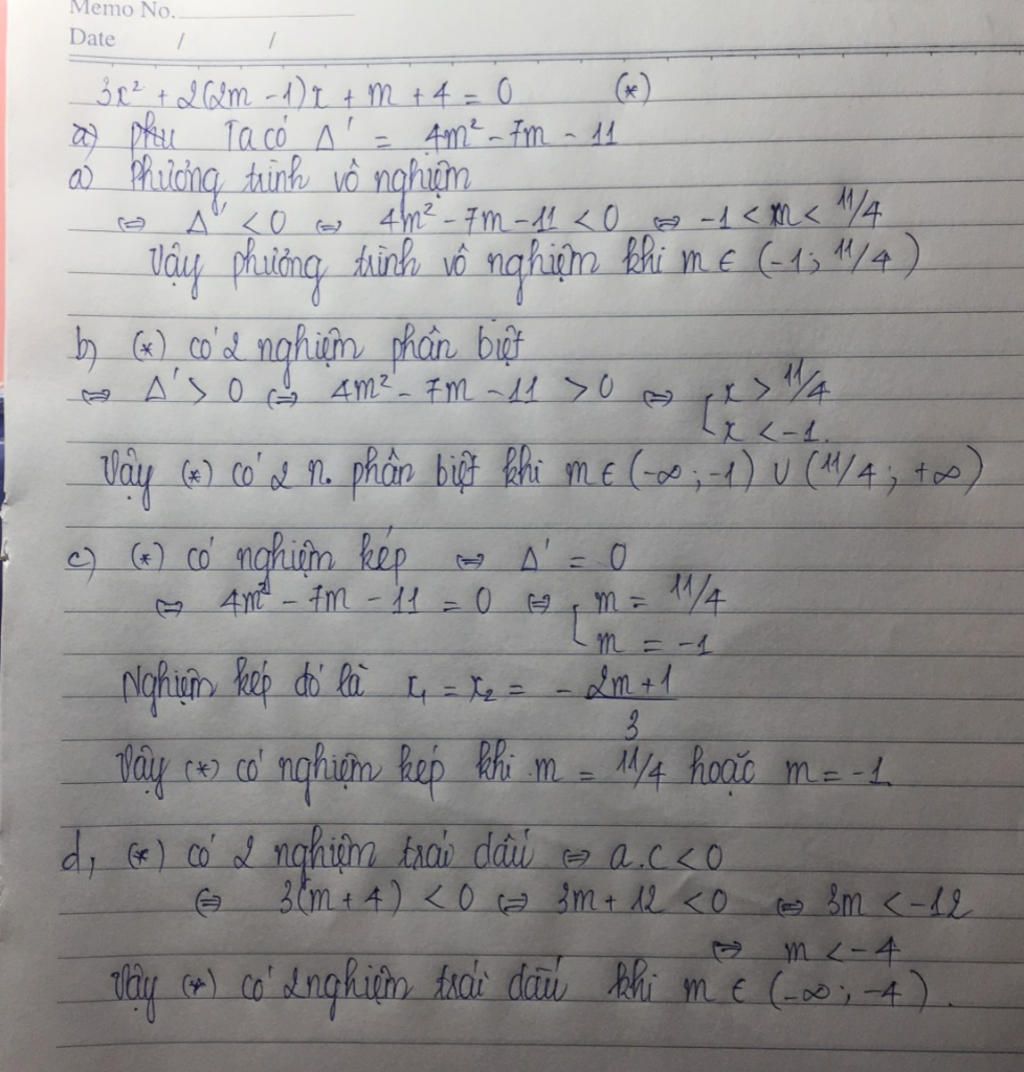 Memo No.
Date / /
3x² + 2(2m - 1)x + m + 4 = 0 (*)
a) phu Ta có Δ' = 4m² - 7m - 11
a) Phương trình vô nghiệm
⇔ Δ' < 0 ⇔ 4m² - 7m - 11 < 0 ⇔ -1 < m < 11/4
Vậy phương trình vô nghiệm khi m ∈ (-1; 11/4)
b) (*) có 2 nghiệm phân biệt
⇔ Δ' > 0 ⇔ 4m² - 7m - 11 > 0 ⇔ [ x > 11/4
x < -1.
Vậy (*) có 2 n. phân biệt khi m ∈ (-∞; -1) ∪ (11/4; +∞)
c) (*) có nghiệm kép ⇔ Δ' = 0
⇔ 4m² - 7m - 11 = 0 ⇔ [ m = 11/4
m = -1
Nghiệm kép đó là x₁ = x₂ = - 2m+1
3
Vậy (*) có nghiệm kép khi m = 11/4 hoặc m = -1.
d, (*) có 2 nghiệm trái dấu ⇔ a.c < 0
⇔ 3(m + 4) < 0 ⇔ 3m + 12 < 0 ⇔ 3m < -12
⇔ m < -4
Vậy (*) có 2 nghiệm trái dấu khi m ∈ (-∞; -4).